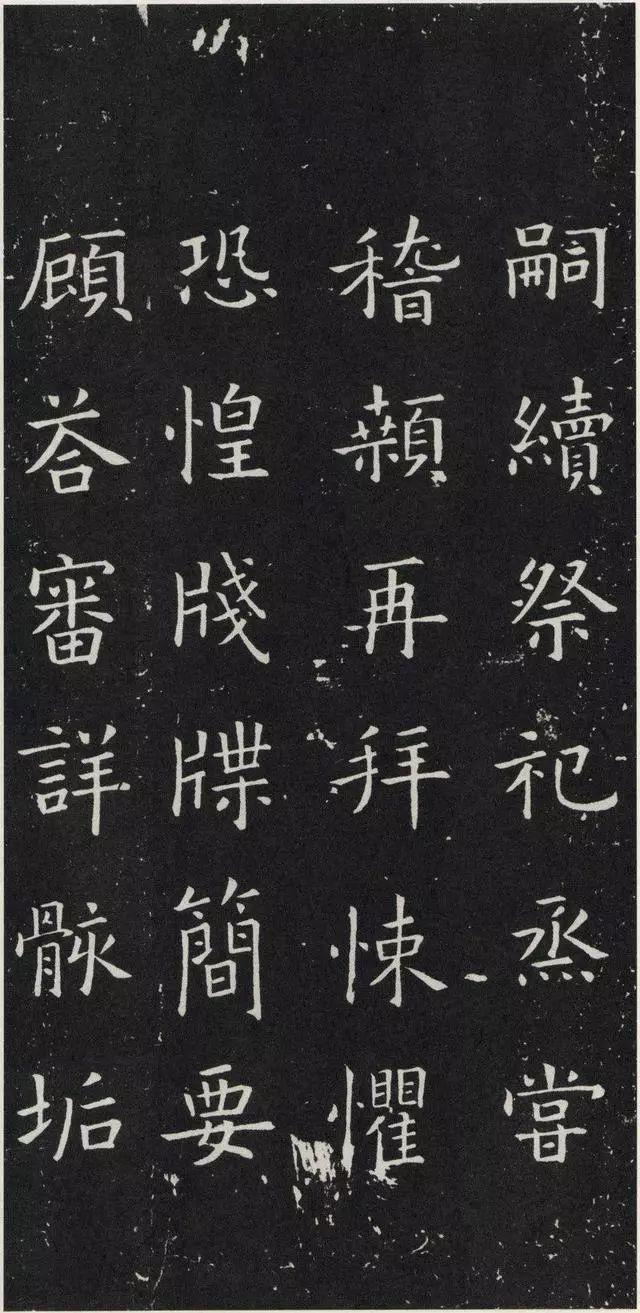 嗣續祭祀烝嘗
稽顙再拜悚懼
恐惶牋牒簡要
顧荅審詳骸垢